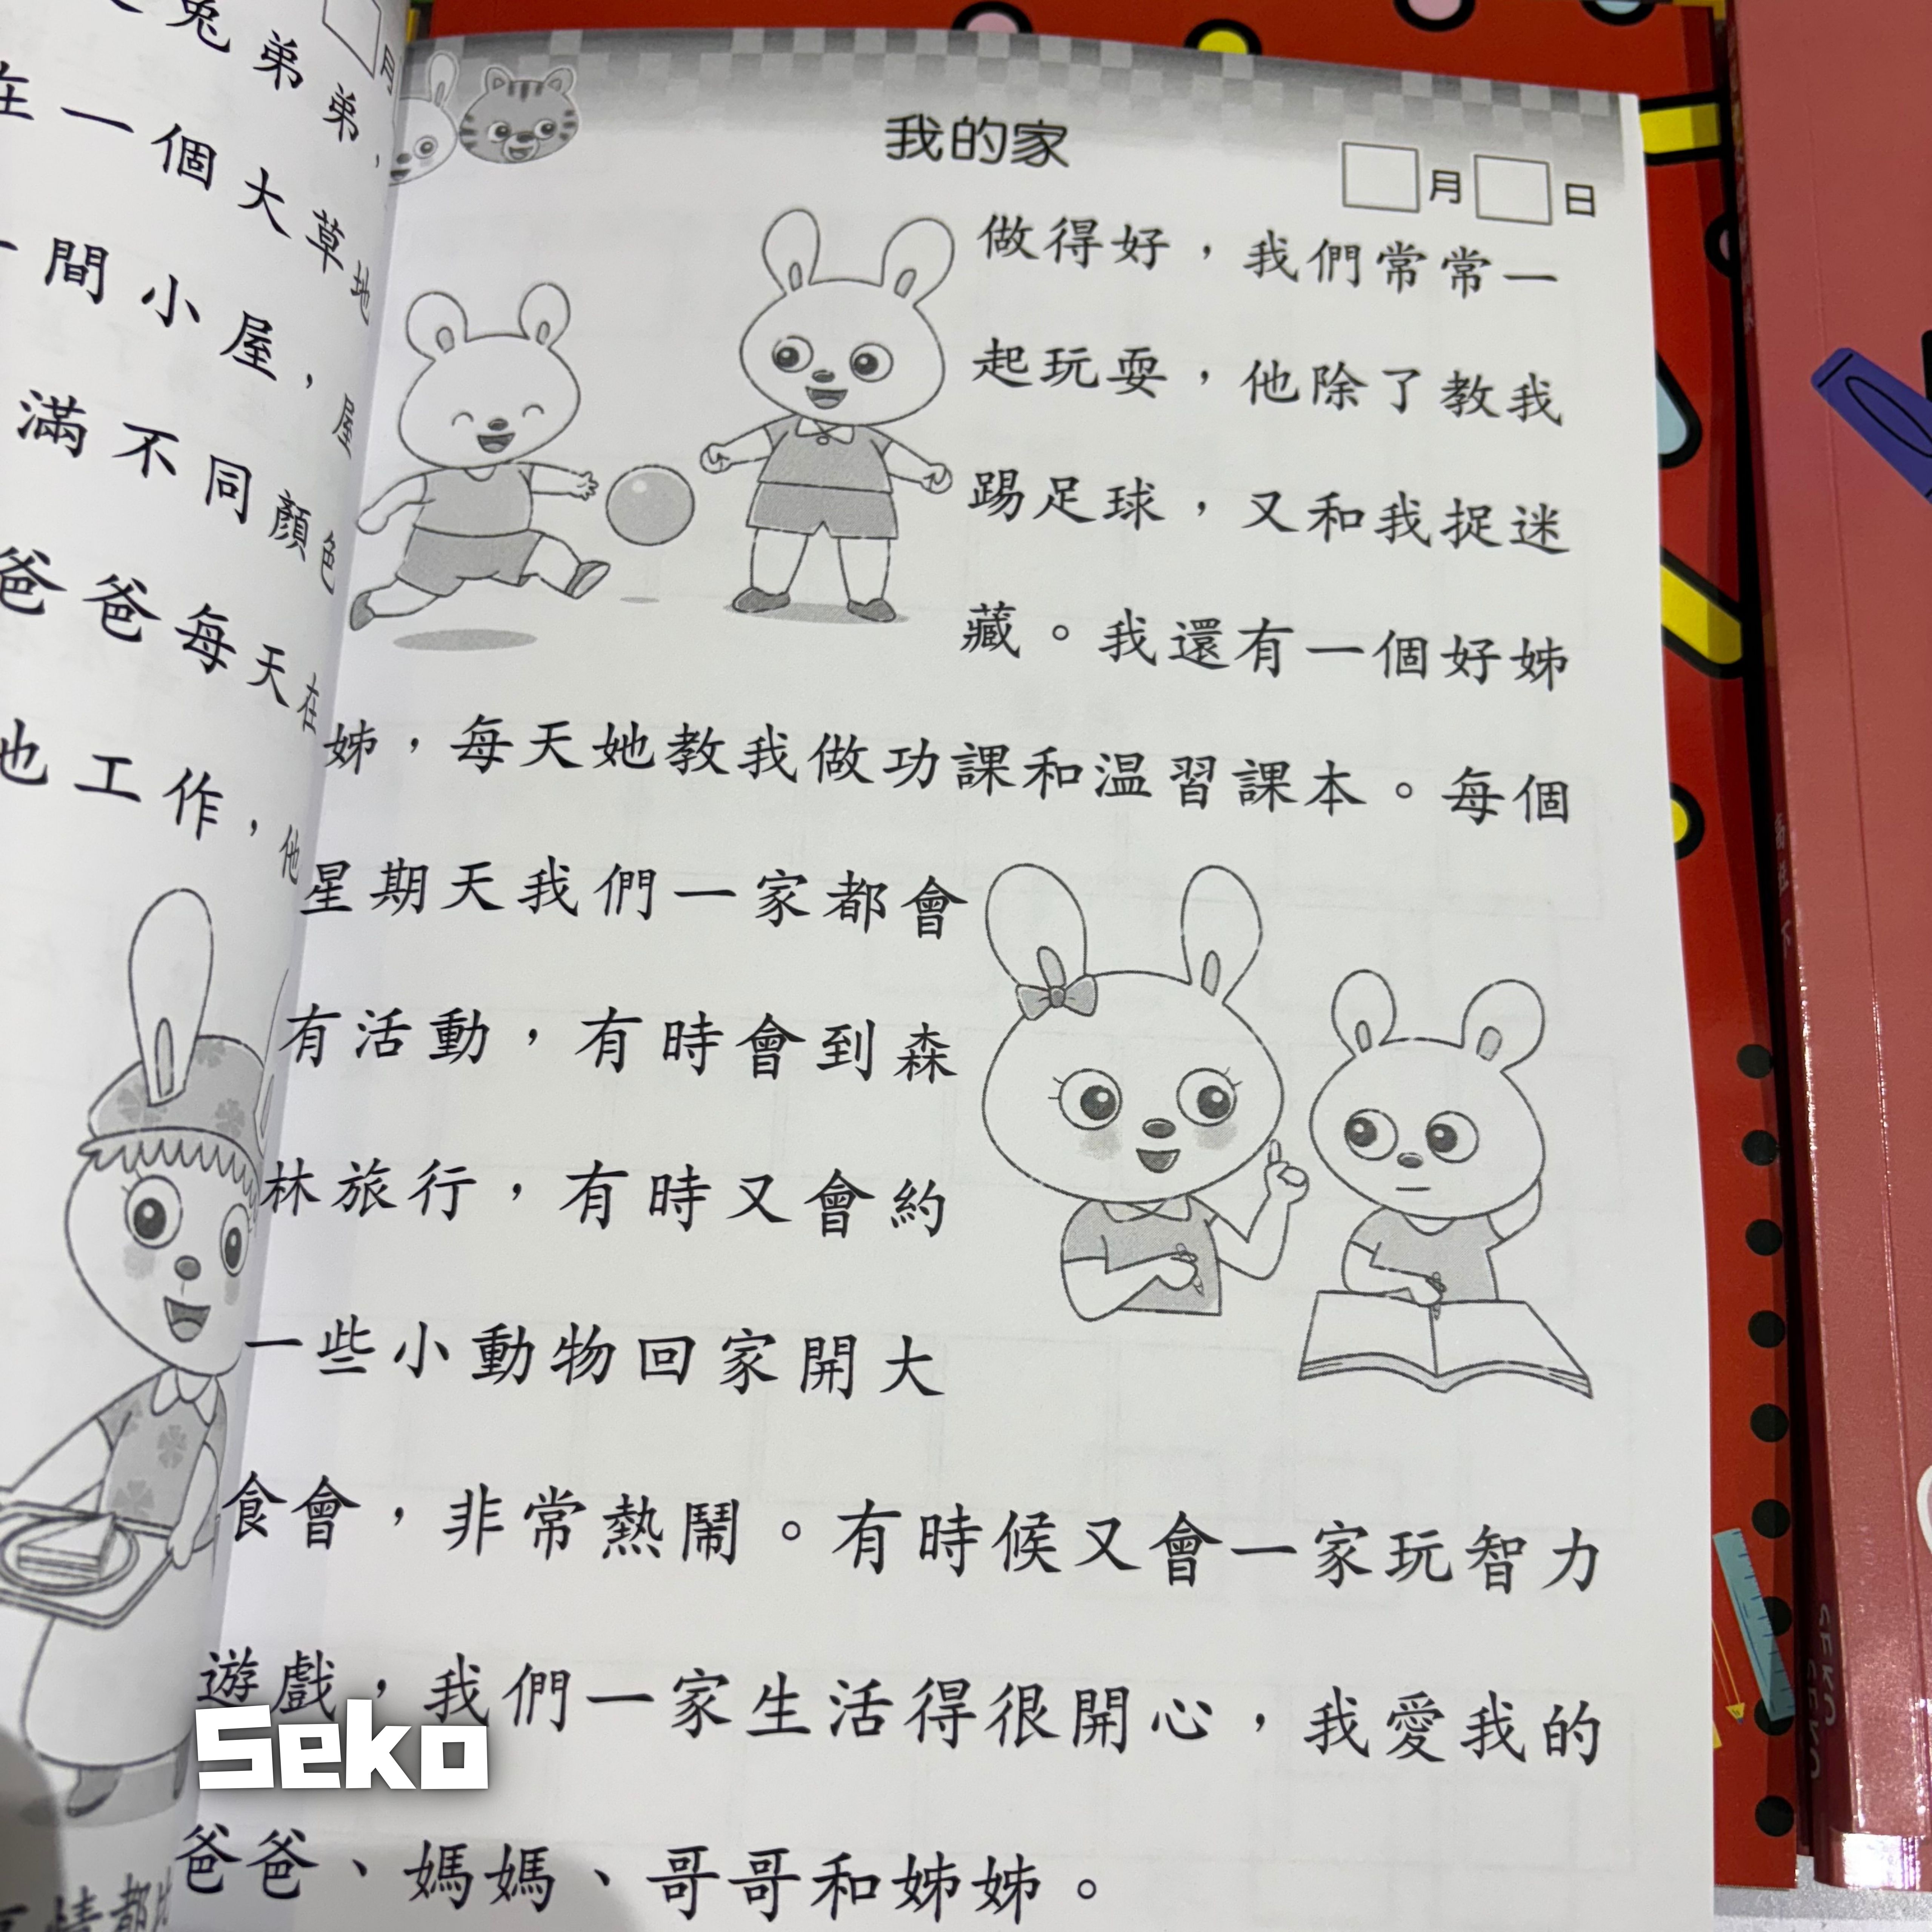 兔弟弟，
在一個大草地
一間小屋，屋
滿不同顏色
爸爸每天在
也工作，他
月
我的家
月 日
做得好，我們常常一
起玩耍，他除了教我
踢足球，又和我捉迷
藏。我還有一個好姊
姊，每天她教我做功課和温習課本。每個
星期天我們一家都會
有活動，有時會到森
林旅行，有時又會約
一些小動物回家開大
食會，非常熱鬧。有時候又會一家玩智力
遊戲，我們一家生活得很開心，我愛我的
爸爸、媽媽、哥哥和姊姊。
Seko